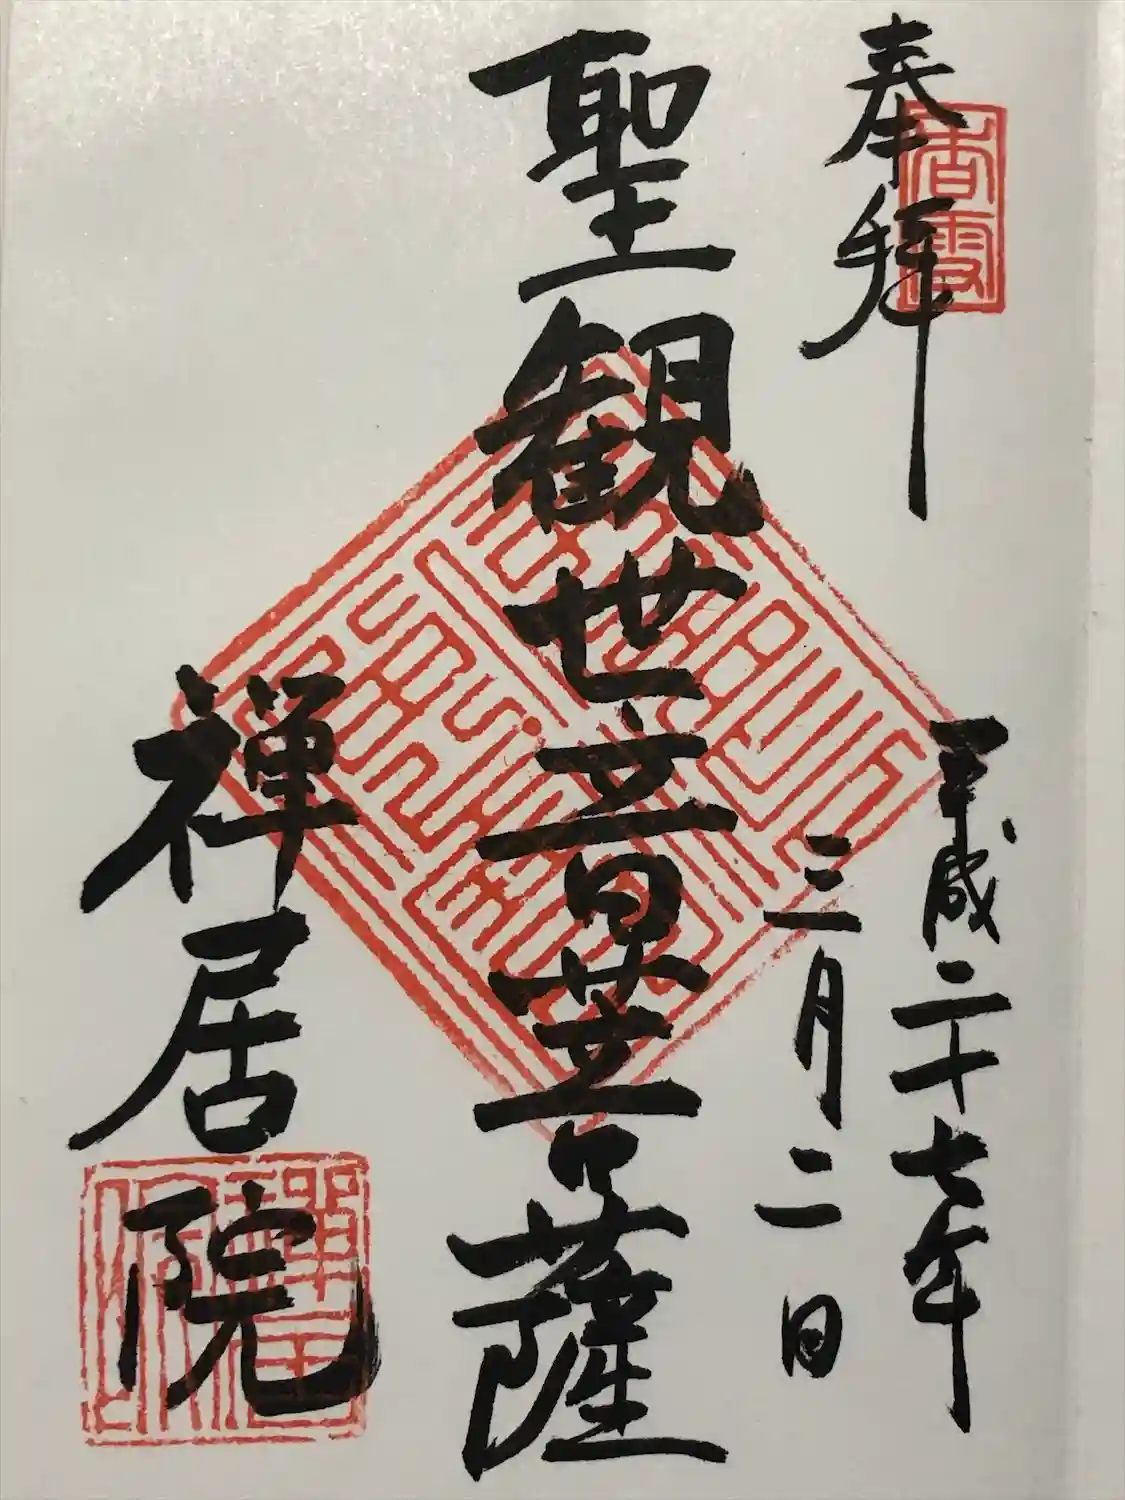 奉拝
香雲
平成二十七年
三月二日
聖観世音菩薩
禅居院